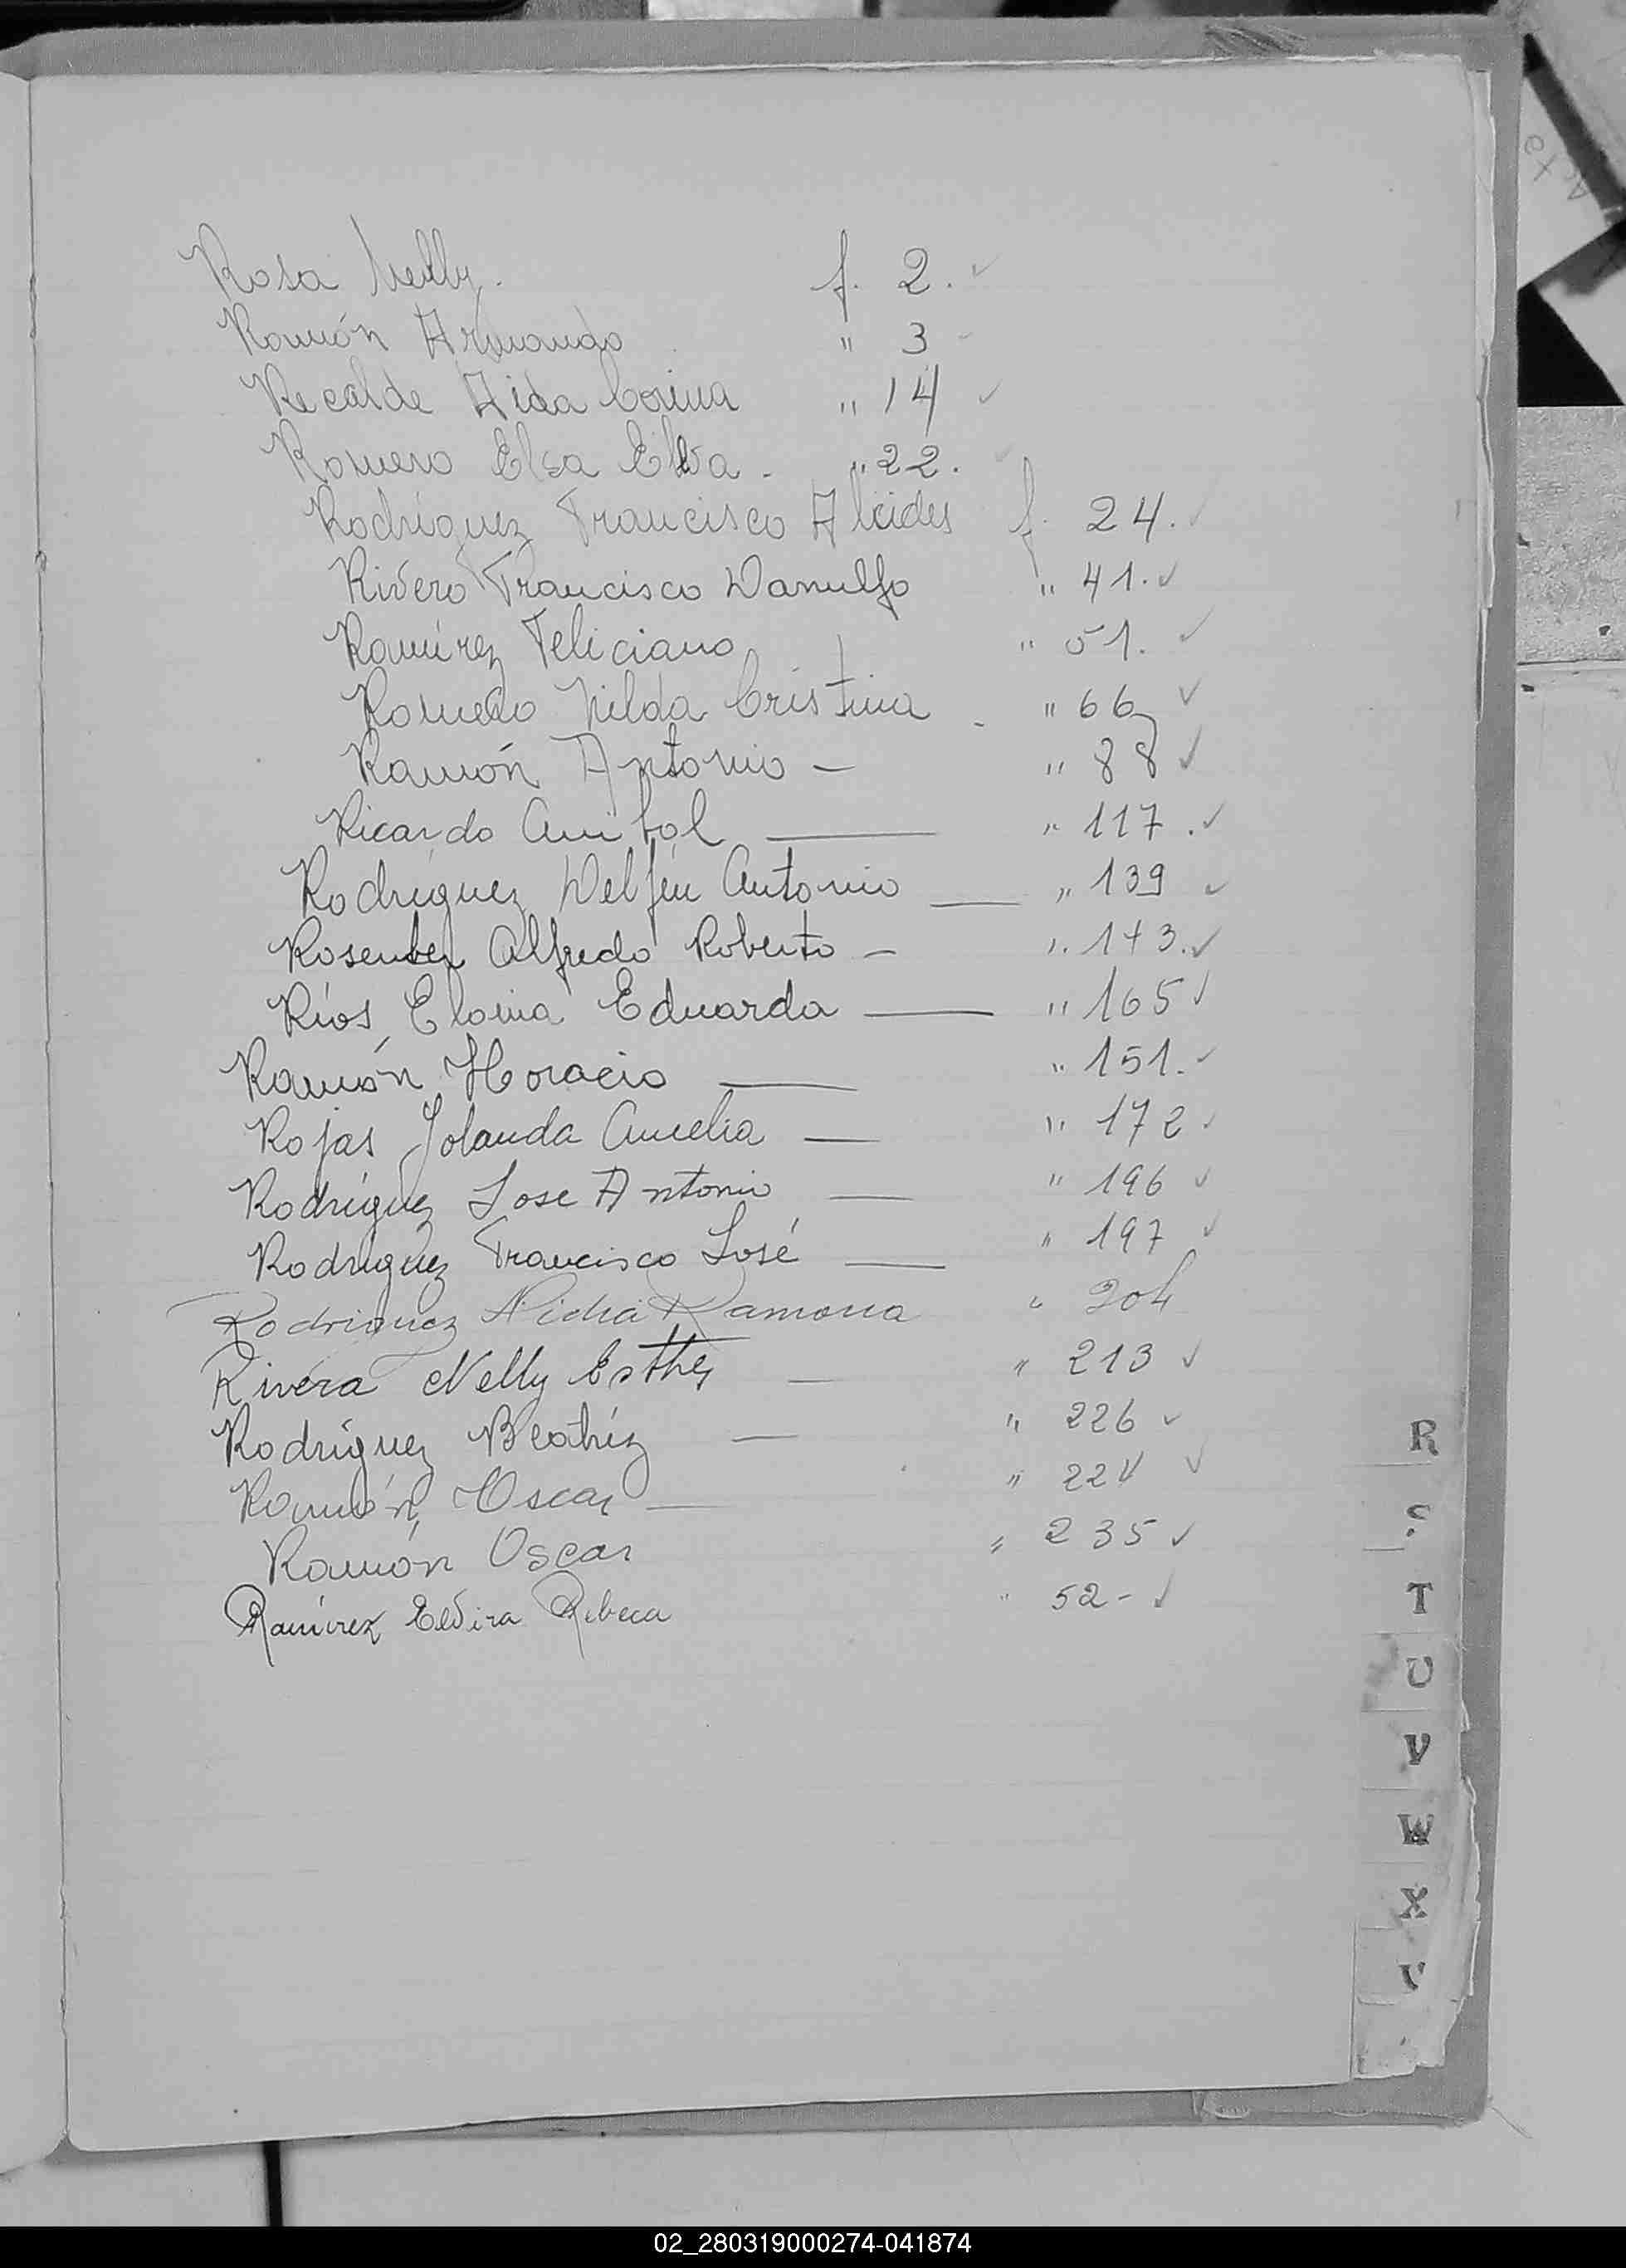 Rosa Nelly. f. 2. ✓
Ramón Armando " 3 -
Recalde Aida Corina " 14 ✓
Romero Elsa Elva - " 22.
Rodríguez Francisco Alcides f. 24. ✓
Rivero Francisco Danulfo " 41. ✓
Ramírez Feliciano " 51. ✓
Romero Nilda Cristina - " 66 ✓
Ramón Antonio — " 88 ✓
Ricardo Anibal — " 117. ✓
Rodríguez Delfín Antonio — " 139 ✓
Alfredo Roberto — ✓
Ríos Eloina Eduarda — " 165 ✓
Ramón Horacio — " 151. ✓
Rojas Yolanda Amelia — " 172 ✓
Rodríguez Jose Antonio — " 196 ✓
Rodríguez Francisco José — " 197 ✓
Rodriguez Ramona " 204
Rivera Nelly Esther — " 213 ✓
Rodríguez Beatríz — " 226 ✓
Ramón, Oscar — " ✓
Ramón Oscar " 235 ✓
Ramírez Elvira Rebeca " 52 - ✓
R
S
T
U
V
W
X
02_280319000274-041874